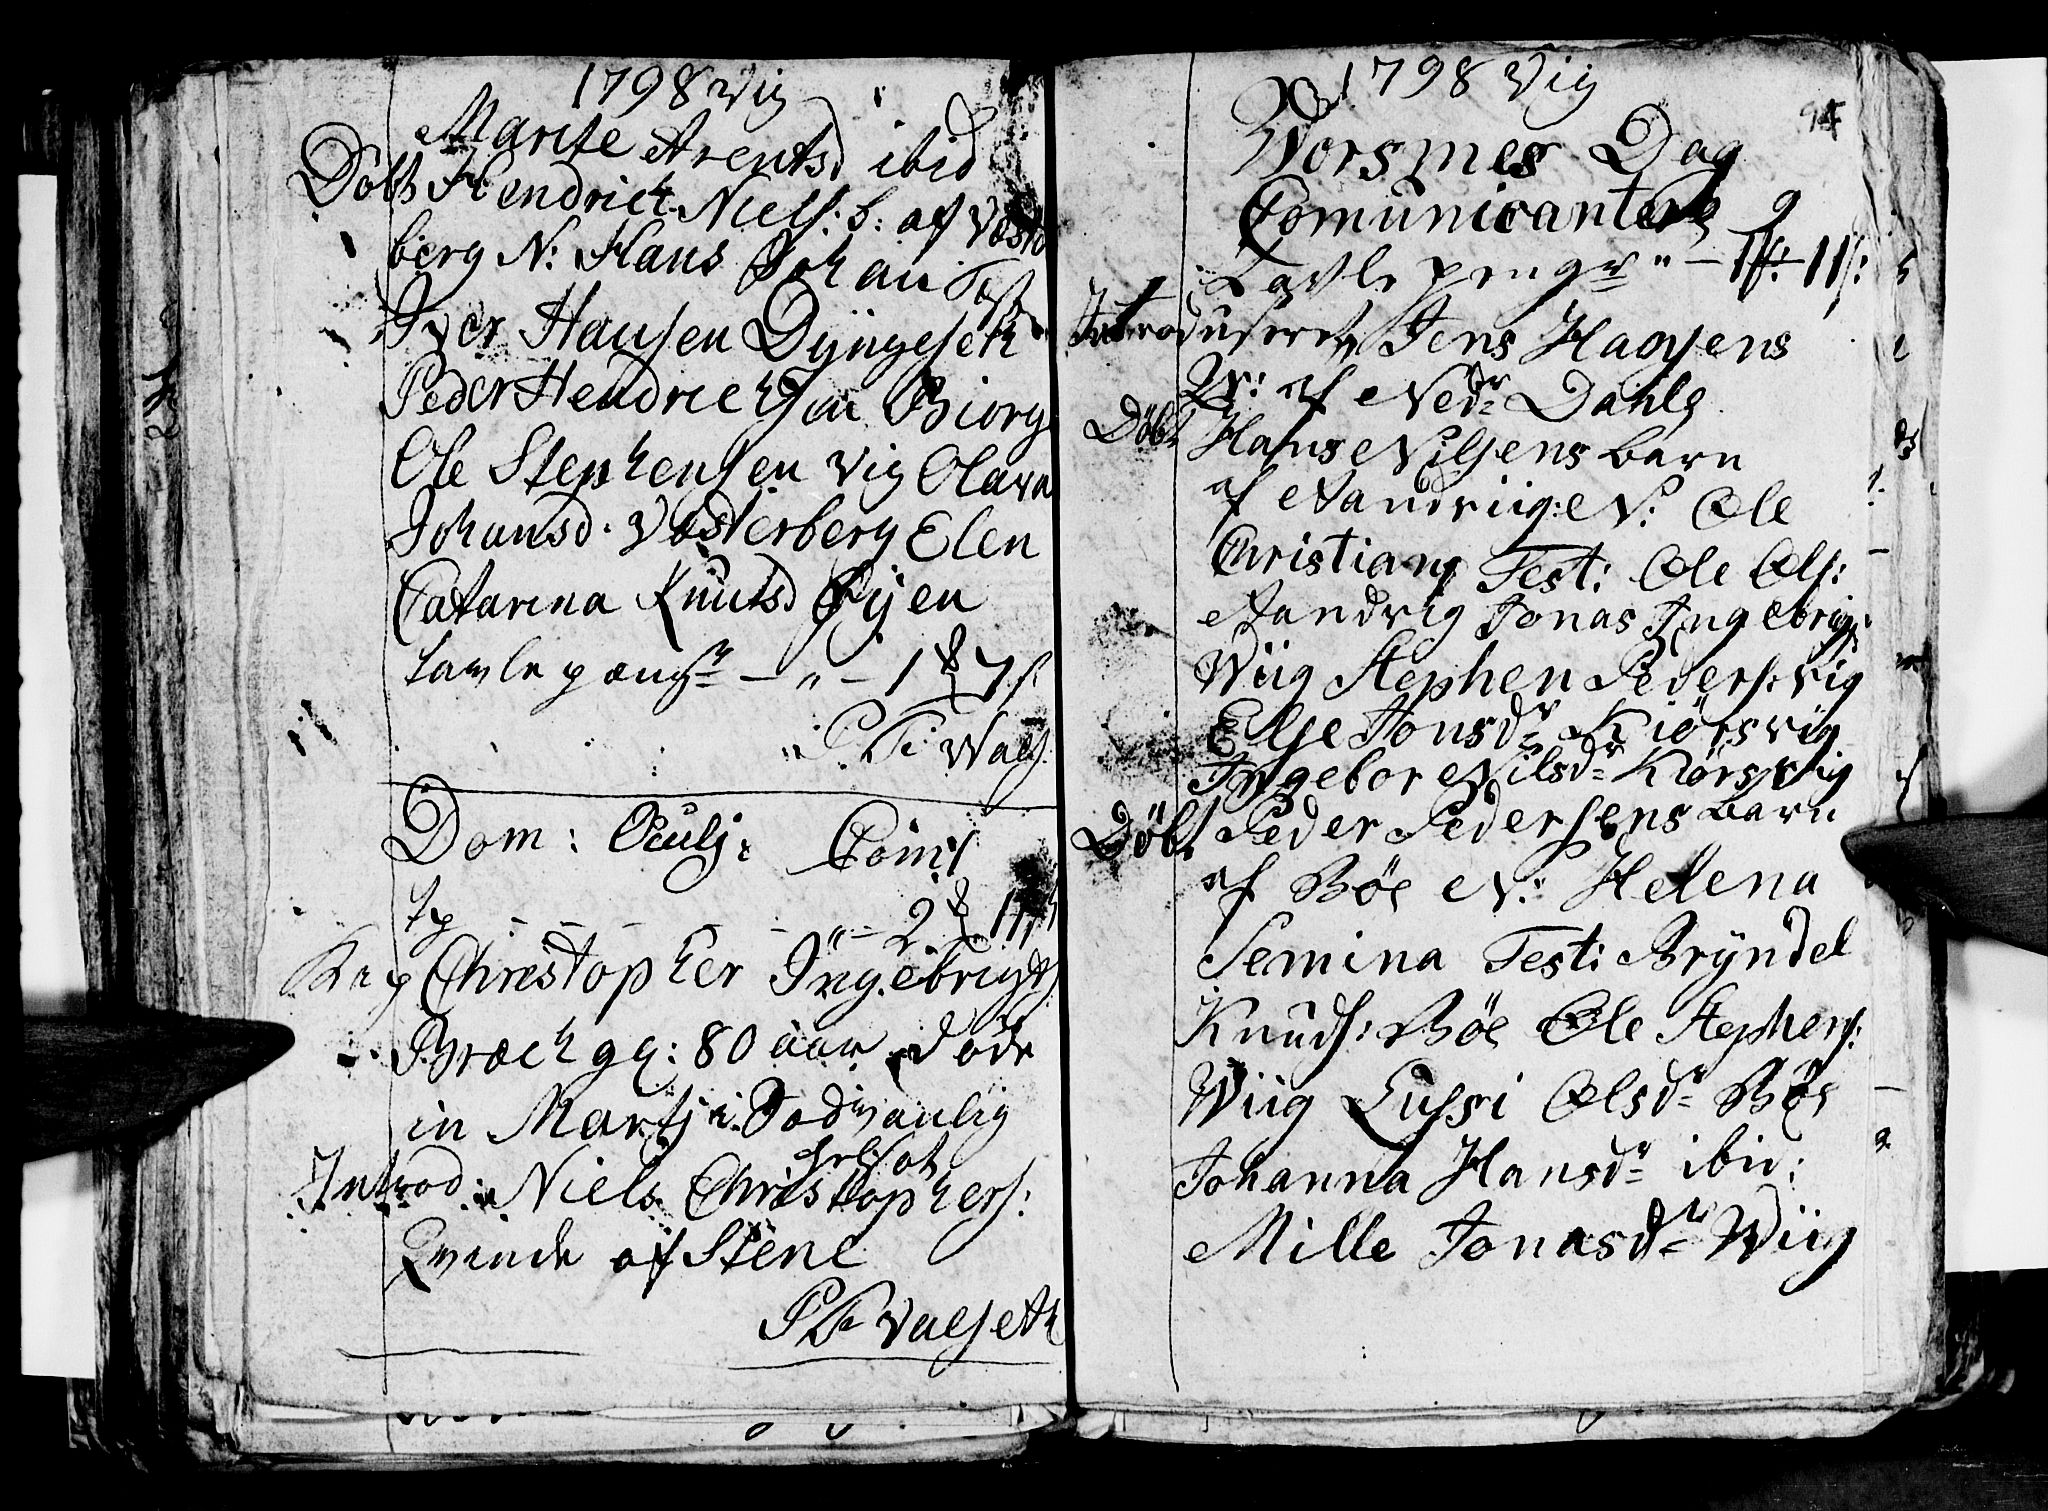 1798 Vig
Marite Arentsd ibid
Döbt Hendrich Niels: b: af Væster
berg N: Hans Johan Test
Iver Hansen Dyngeseth
Peder Hendrichsen Biörg
Ole Stephensen Vig Olava
Johansd. Væsterberg Elen
Catarina Knutsd Øyen
tavle pæng — " — 1 7 s
P. F. Vals
Dom: Oculj: Com:
tp — — " — 2 11 s
Christopher Ingebrigts
Bræch gl: 80 aar døde
in Martj i. Sodvanlig
helsot
Introd: Niels Christophers:
Qvinde af Stene
P F Valseth
1798 Vig
94
Worsmes Dag
Comunicantere 9
Tavle penger " — 11 s:
Introduseret Jens Hagens
K: af Nedr Dahle
Döbt Hans Nilsens barn
af Aandviig: N: Ole
Christian Test: Ole Ols:
Aandvig Jonas Ingebrigs:
Wiig Stephen Peders: Vig
Else Jonsdr Kiörsvig
Ingebor Nilsdr Kiörsvig
Döbt Peder Pedersens barn
af Böe N: Helena
Semina Test: Bryndel
Knuds: Böe Ole Stephens:
Wiig Lussi Olsdr Böe
Johanna Hansdr ibid:
Mille Jonasdr Wiig